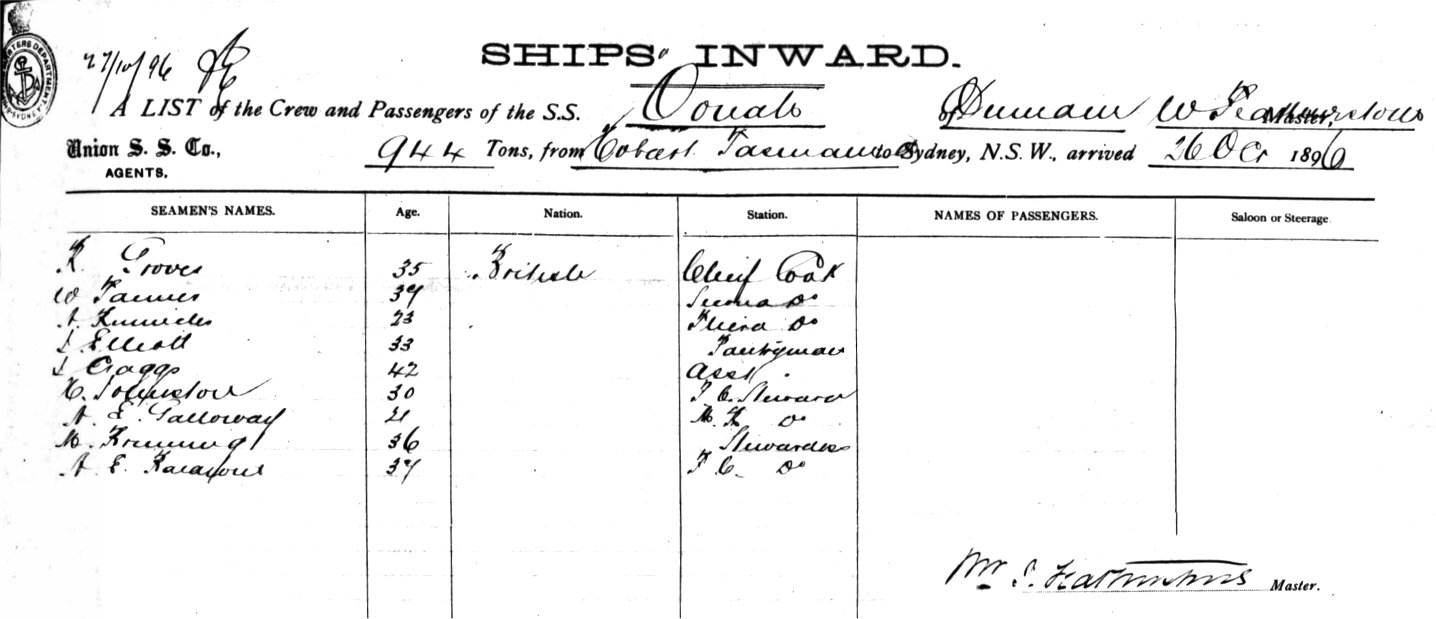 27/10/96
SHIPS' INWARD.
A LIST of the Crew and Passengers of the S.S. Oonah of Dunedin W Featherstone Master,
Union S. S. Co., 944 Tons, from Hobart Tasmania to Sydney, N.S.W., arrived 26 Oct 1896
AGENTS.
SEAMEN'S NAMES. Age. Nation. Station. NAMES OF PASSENGERS. Saloon or Steerage
R. Groves 35 British Chief Cook
W 37 Second Do
A 23 Third Do
J Elliott 33 Pantryman
J Craggs 42 Asst
H. Johnston 30 F C. Steward
A. E. Galloway 21 Do
M. 36 Stewardess
A E. 37 F C. Do
Wm Master.